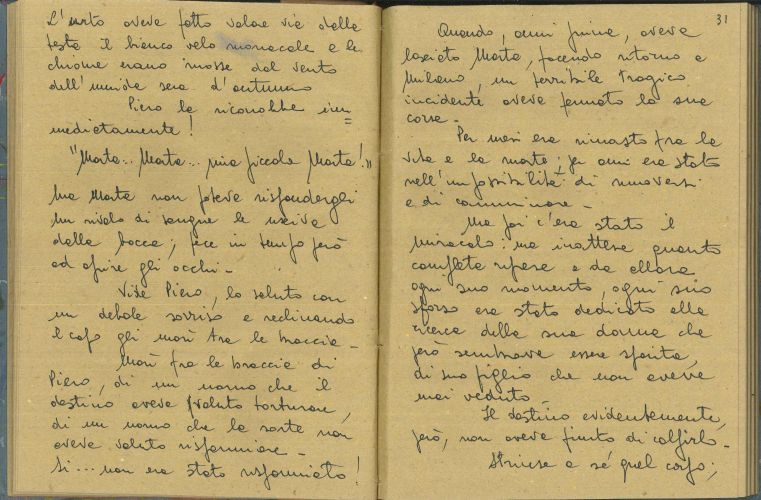 L'urto aveva fatto volare via dalla
testa il bianco velo monacale e le
chiome erano mosse dal vento
dell'umida sera d'autunno
Piero la riconobbe im=
mediatamente!
"Marta... Marta... mia piccola Marta!..."
Ma Marta non poteva rispondergli
Un rivolo di sangue le usciva
dalla bocca; fece in tempo però
ad aprire gli occhi -
Vide Piero, lo salutò con
un debole sorriso e reclinando
il capo gli morì tra le braccia -
Morì fra le braccia di
Piero, di un uomo che il
destino aveva voluto torturare,
di un uomo che la sorte non
aveva voluto risparmiare -
Si... non era stato risparmiato!
31
Quando, anni prima, aveva
lasciato Marta, facendo ritorno a
Milano, un terribile tragico
incidente aveva fermato la sua
corsa -
Per mesi era rimasto fra la
vita e la morte; per anni era stato
nell'impossibilità di muoversi
e di camminare -
Ma poi c'era stato il
miracolo: una inattesa quanto
completa ripresa e da allora
ogni suo momento, ogni suo
sforzo era stato dedicato alla
ricerca della sua donna che
però sembrava essere sparita,
di suo figlio che non aveva
mai veduto -
Il destino evidentemente,
però, non aveva finito di colpirlo -
Strinse a sé quel corpo;